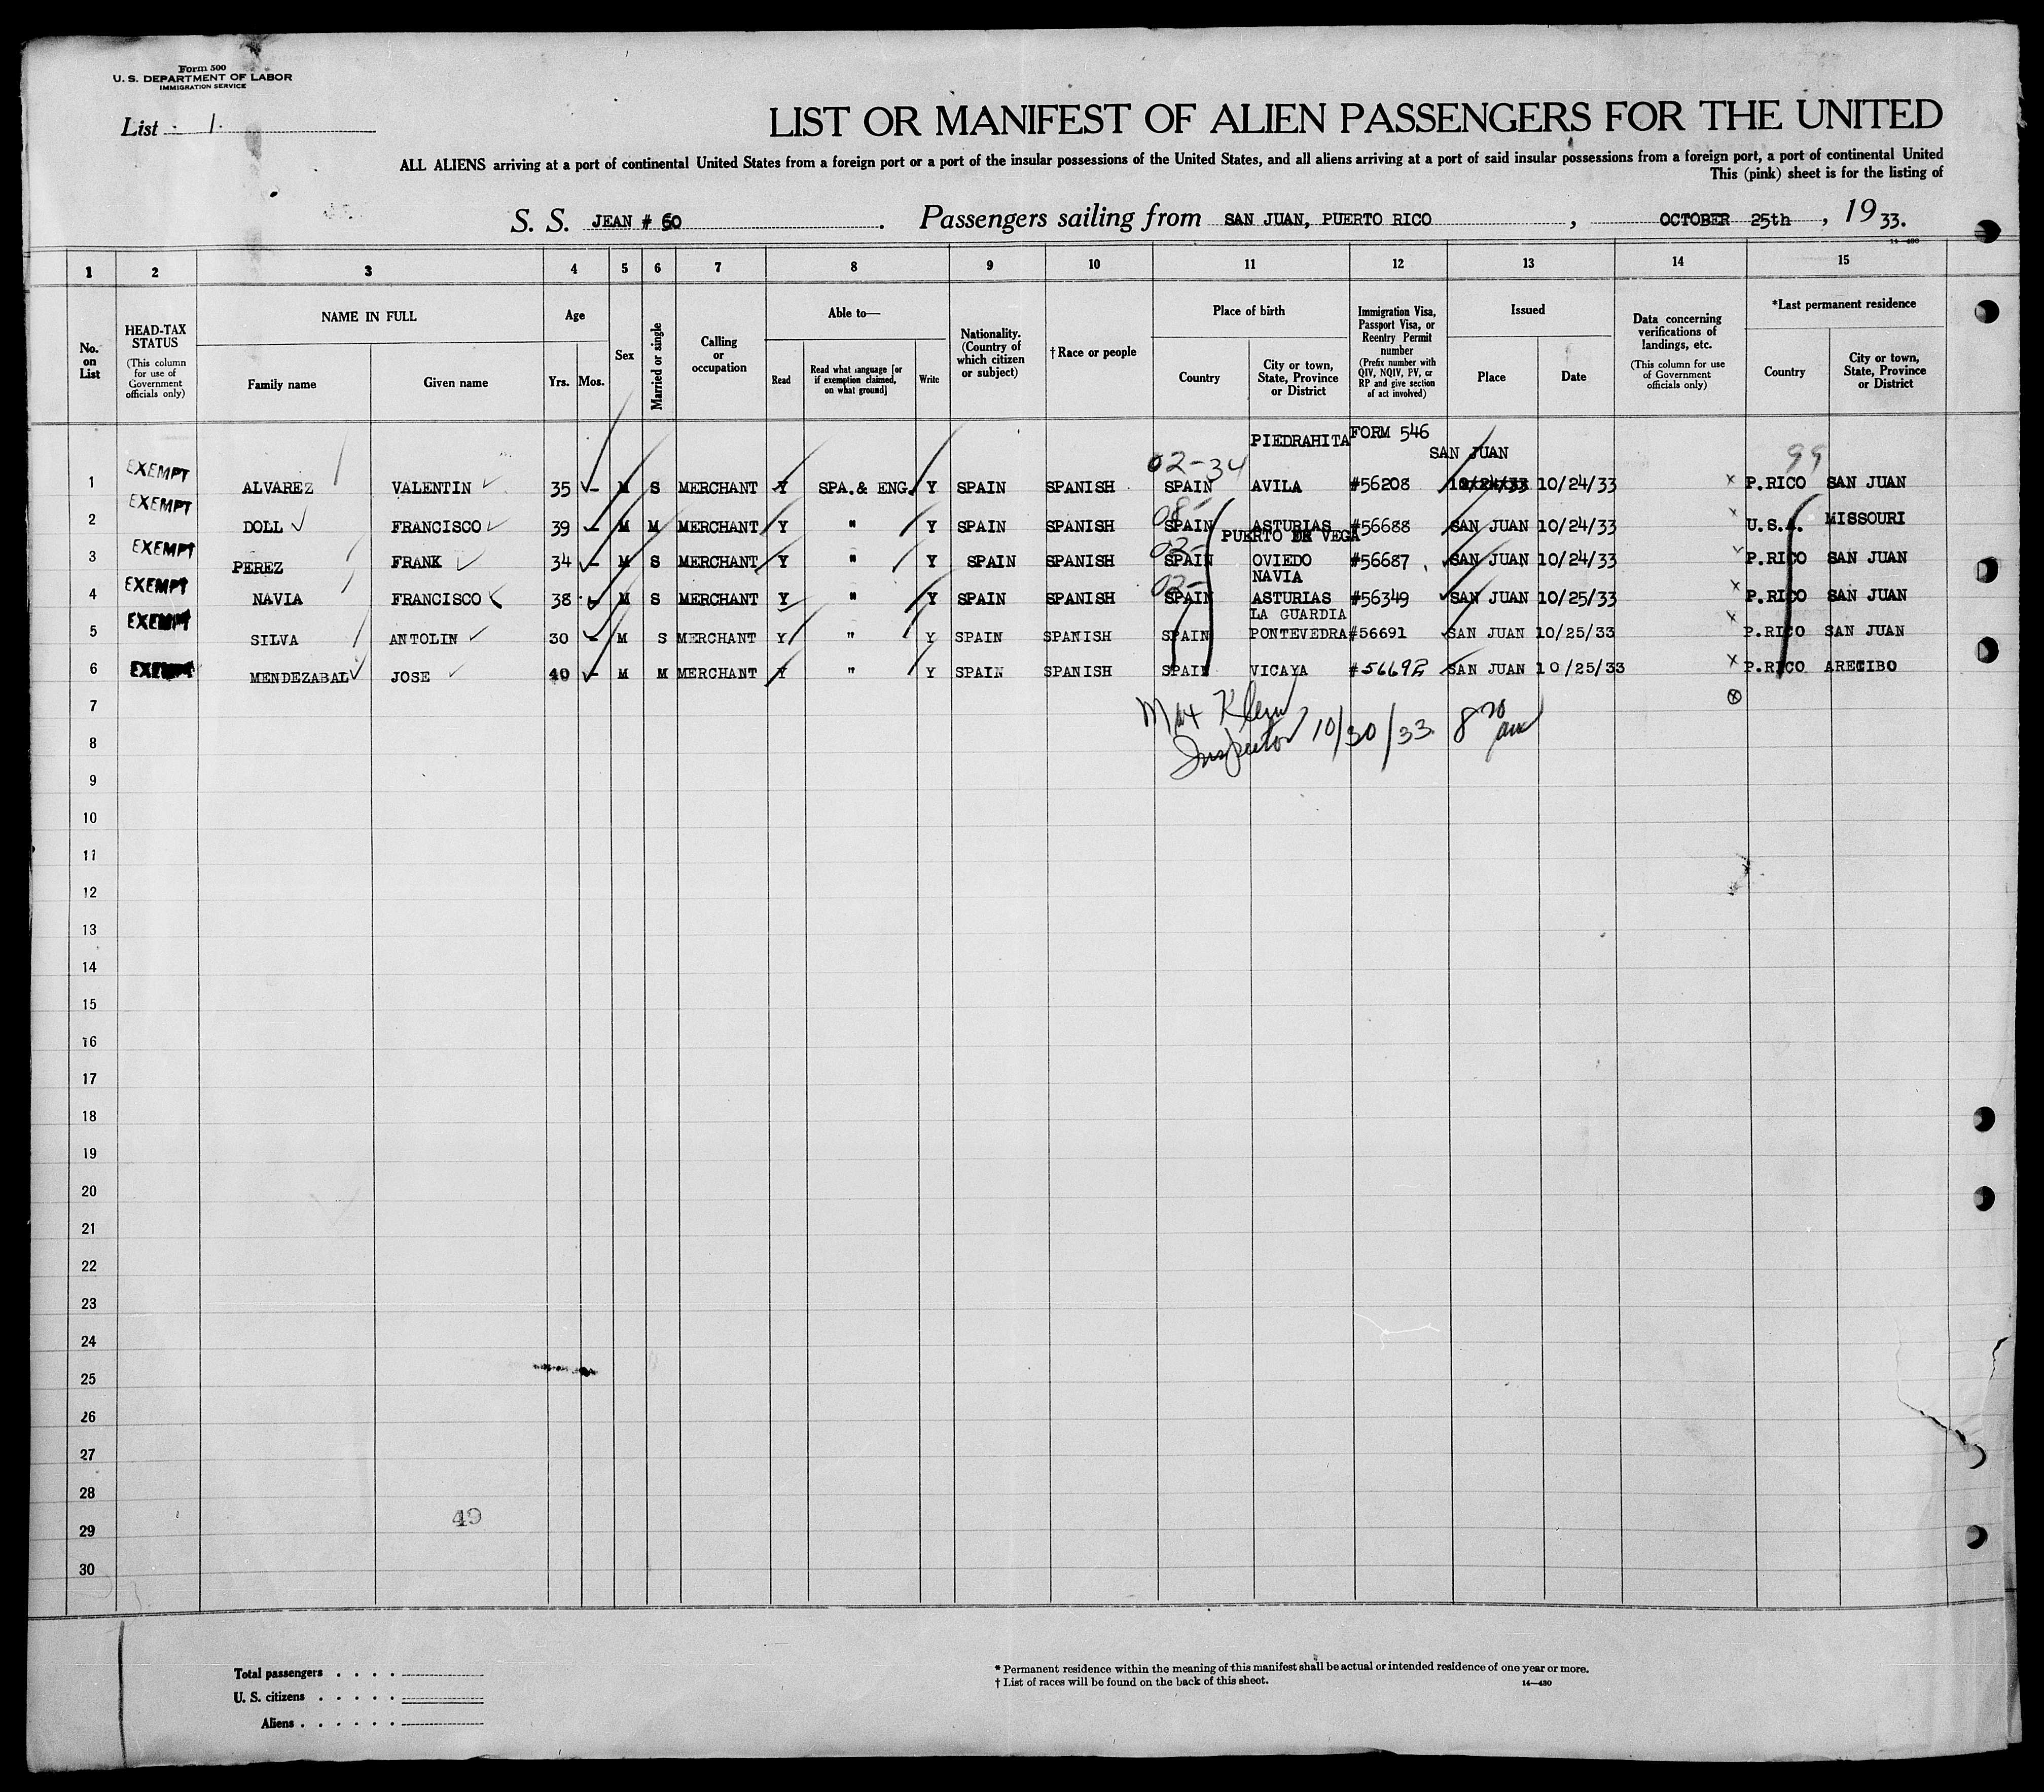 Form 500
U. S. DEPARTMENT OF LABOR
IMMIGRATION SERVICE
List 1.
LIST OR MANIFEST OF ALIEN PASSENGERS FOR THE UNITED
ALL ALIENS arriving at a port of continental United States from a foreign port or a port of the insular possessions of the United States, and all aliens arriving at a port of said insular possessions from a foreign port, a port of continental United
This (pink) sheet is for the listing of
S. S. JEAN # 60. Passengers sailing from SAN JUAN, PUERTO RICO, OCTOBER 25th, 1933.
14—430
1 2 3 4 5 6 7 8 9 10 11 12 13 14 15
No. on List
HEAD-TAX STATUS
(This column for use of Government officials only)
NAME IN FULL
Family name
Given name
Age
Yrs. Mos.
Sex
Married or single
Calling or occupation
Able to—
Read
Read what language [or if exemption claimed, on what ground]
Write
Nationality. (Country of which citizen or subject)
†Race or people
Place of birth
Country
City or town, State, Province or District
Immigration Visa, Passport Visa, or Reentry Permit number
(Prefix number with QIV, NQIV, PV, or RP and give section of act involved)
Issued
Place
Date
Data concerning verifications of landings, etc.
(This column for use of Government officials only)
*Last permanent residence
Country
City or town, State, Province or District
PIEDRAHITA FORM 546
SAN JUAN
02-34 99
1 EXEMPT ALVAREZ VALENTIN 35 - M S MERCHANT Y SPA.& ENG. Y SPAIN SPANISH SPAIN AVILA #56208 10/24/33 10/24/33 x P.RICO SAN JUAN
08-
2 EXEMPT DOLL FRANCISCO 39 - M M MERCHANT Y " Y SPAIN SPANISH SPAIN ASTURIAS #56688 SAN JUAN 10/24/33 x U.S.A. MISSOURI
PUERTO DE VEGA
02-
3 EXEMPT PEREZ FRANK 34 - M S MERCHANT Y " Y SPAIN SPANISH SPAIN OVIEDO #56687 SAN JUAN 10/24/33 x P.RICO SAN JUAN
NAVIA
02-
4 EXEMPT NAVIA FRANCISCO 38 - M S MERCHANT Y " Y SPAIN SPANISH SPAIN ASTURIAS #56349 SAN JUAN 10/25/33 x P.RICO SAN JUAN
LA GUARDIA
5 EXEMPT SILVA ANTOLIN 30 - M S MERCHANT Y " Y SPAIN SPANISH SPAIN PONTEVEDRA #56691 SAN JUAN 10/25/33 x P.RICO SAN JUAN
6 EXEMPT MENDEZABAL JOSE 40 - M M MERCHANT Y " Y SPAIN SPANISH SPAIN VICAYA #56692 SAN JUAN 10/25/33 x P.RICO ARECIBO
7
Max Klein
Inspector 10/30/33. 8 30 am
8
9
10
11
12
13
14
15
16
17
18
19
20
21
22
23
24
25
26
27
28
49
29
30
Total passengers . . . .
U. S. citizens . . . . .
Aliens . . . . . .
* Permanent residence within the meaning of this manifest shall be actual or intended residence of one year or more.
† List of races will be found on the back of this sheet.
14—430